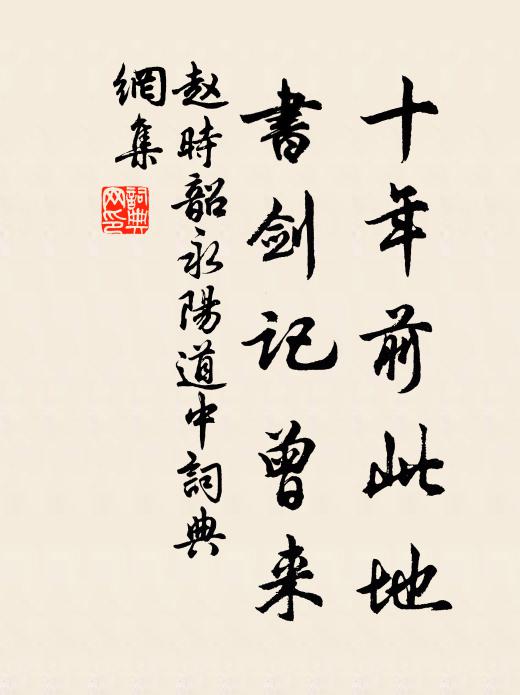 十年前此地
書剑记曾来
赵時韶永陽道中詞典
網集
詞典网印